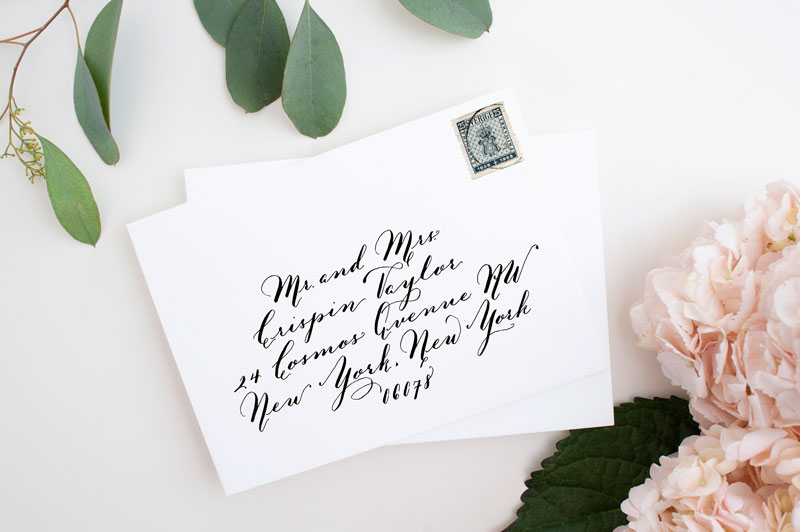 SVERIGE
Mr. and Mrs.
Crispin Taylor
24 Cosmos Avenue NW
New York, New York
06078